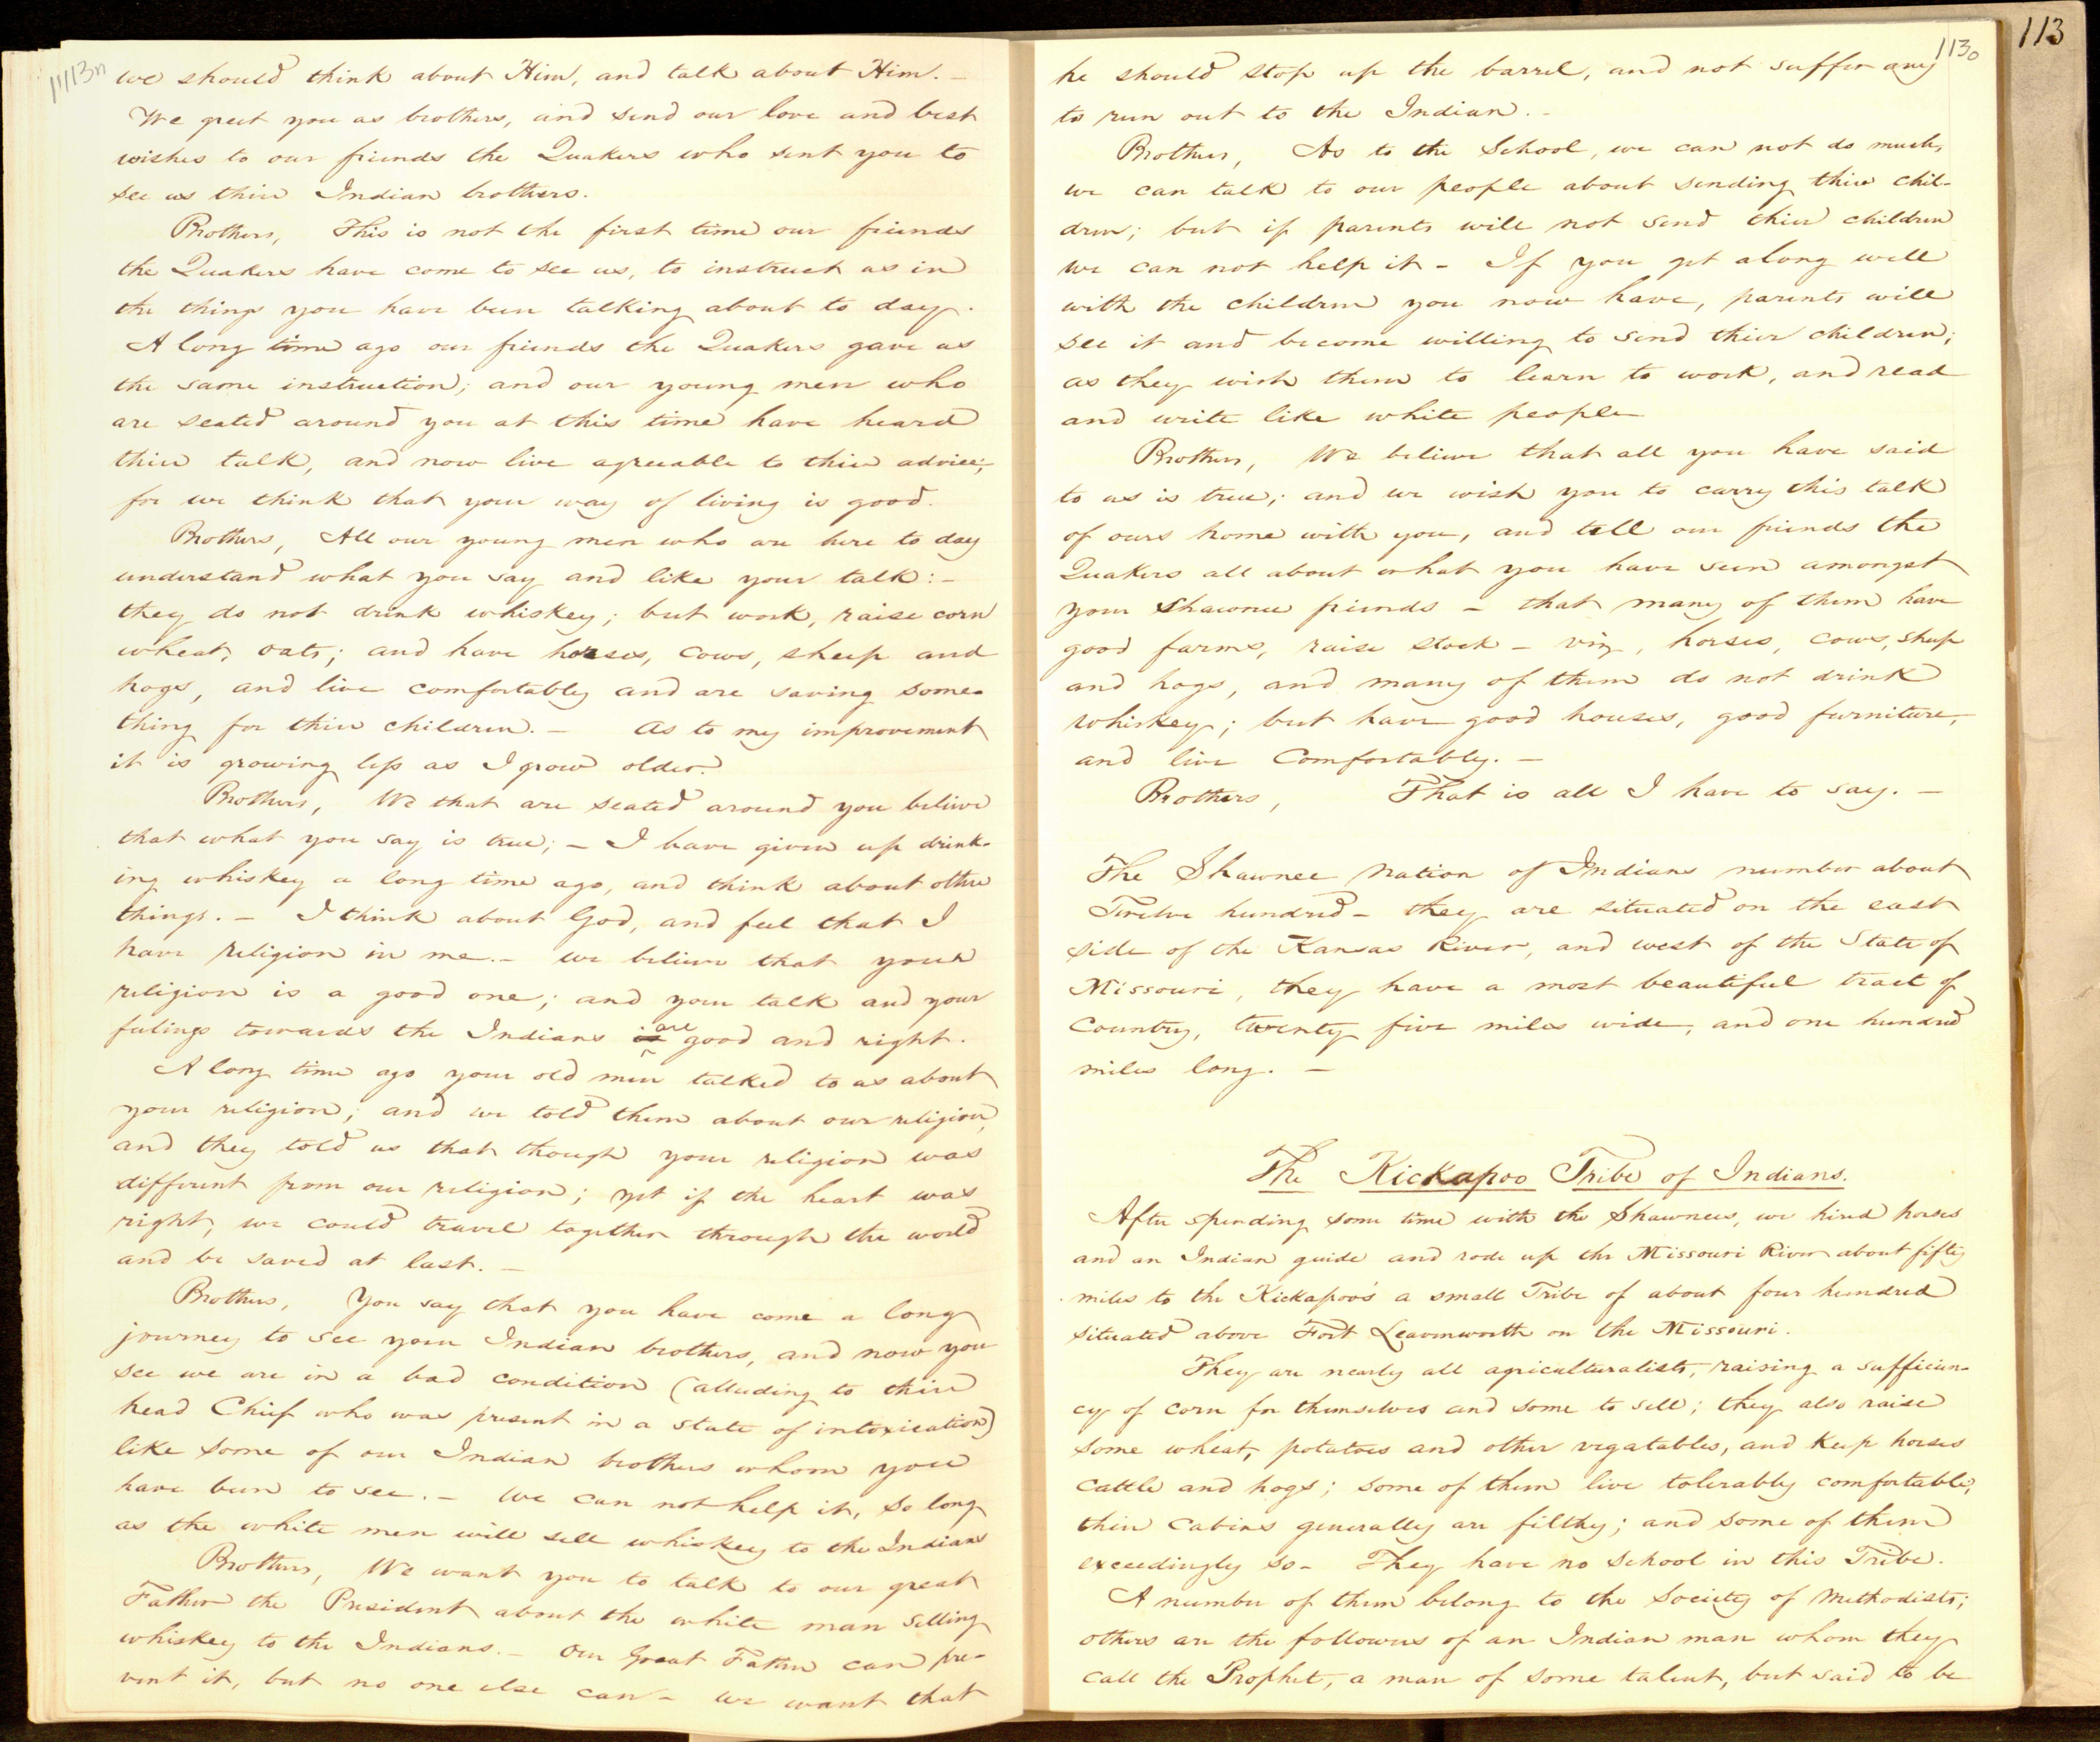 1113n
we should think about Him, and talk about Him. –
We greet you as brothers, and send our love and best
wishes to our friends the Quakers who sent you to
see us their Indian brothers.
Brothers, This is not the first time our friends
the Quakers have come to see us, to instruct us in
the things you have been talking about to day.
A long time ago our friends the Quakers gave us
the same instruction; and our young men who
are seated around you at this time have heard
their talk, and now live agreeable to their advice;
for we think that your way of living is good.
Brothers, All our young men who are here to day
understand what you say and like your talk: –
they do not drink whiskey; but work, raise corn
wheat, oats; and have horses, cows, sheep and
hogs, and live comfortably and are saving some-
thing for their children. – As to my improvement
it is growing less as I grow older.
Brothers, We that are seated around you believe
that what you say is true; – I have given up drink-
ing whiskey a long time ago, and think about other
things. – I think about God, and feel that I
have religion in me. – we believe that your
religion is a good one; and your talk and your
feelings towards the Indians is are good and right.
A long time ago your old men talked to us about
your religion; and we told them about our religion,
and they told us that though your religion was
different from our religion; yet if the heart was
right, we could travel together through the world
and be saved at last. –
Brothers, You say that you have come a long
journey to see your Indian brothers, and now you
see we are in a bad condition (alluding to their
head Chief who was present in a state of intoxication)
like some of our Indian brothers whom you
have been to see. – We can not help it, so long
as the white men will sell whiskey to the Indians
Brothers, We want you to talk to our great
Father the President about the white man selling
whiskey to the Indians. – Our Great Father can pre-
vent it, but no one else can – we want that
113
113o
he should stop up the barrel, and not suffer any
to run out to the Indian. –
Brothers, As to the School, we can not do much,
we can talk to our people about sending their chil-
dren; but if parents will not send their children
we can not help it – If you get along well
with the children you now have, parents will
see it and become willing to send their children;
as they wish them to learn to work, and read
and write like white people
Brothers, We believe that all you have said
to us is true; and we wish you to carry this talk
of ours home with you, and tell our friends the
Quakers all about what you have seen amongst
your Shawnee friends – that many of them have
good farms, raise stock – viz, horses, cows, sheep
and hogs, and many of them do not drink
whiskey; but have good houses, good furniture,
and live Comfortably. –
Brothers, That is all I have to say. –
The Shawnee Nation of Indians number about
Twelve hundred – they are situated on the east
side of the Kansas River, and west of the State of
Missouri, they have a most beautiful tract of
Country, twenty five miles wide, and one hundred
miles long. –
The Kickapoo Tribe of Indians.
After spending some time with the Shawnees, we hired horses
and an Indian guide and rode up the Missouri River about fifty
miles to the Kickapoo's a small Tribe of about four hundred
situated above Fort Leavenworth on the Missouri.
They are nearly all agriculturalists, raising a sufficien-
cy of corn for themselves and some to sell; they also raise
some wheat, potatoes and other vegatables, and keep horses
cattle and hogs; some of them live tolerably comfortable;
their cabins generally are filthy; and some of them
exceedingly so – They have no school in this Tribe.
A number of them belong to the Society of Methodists;
others are the followers of an Indian man whom they
call the Prophet, a man of some talent, but said to be